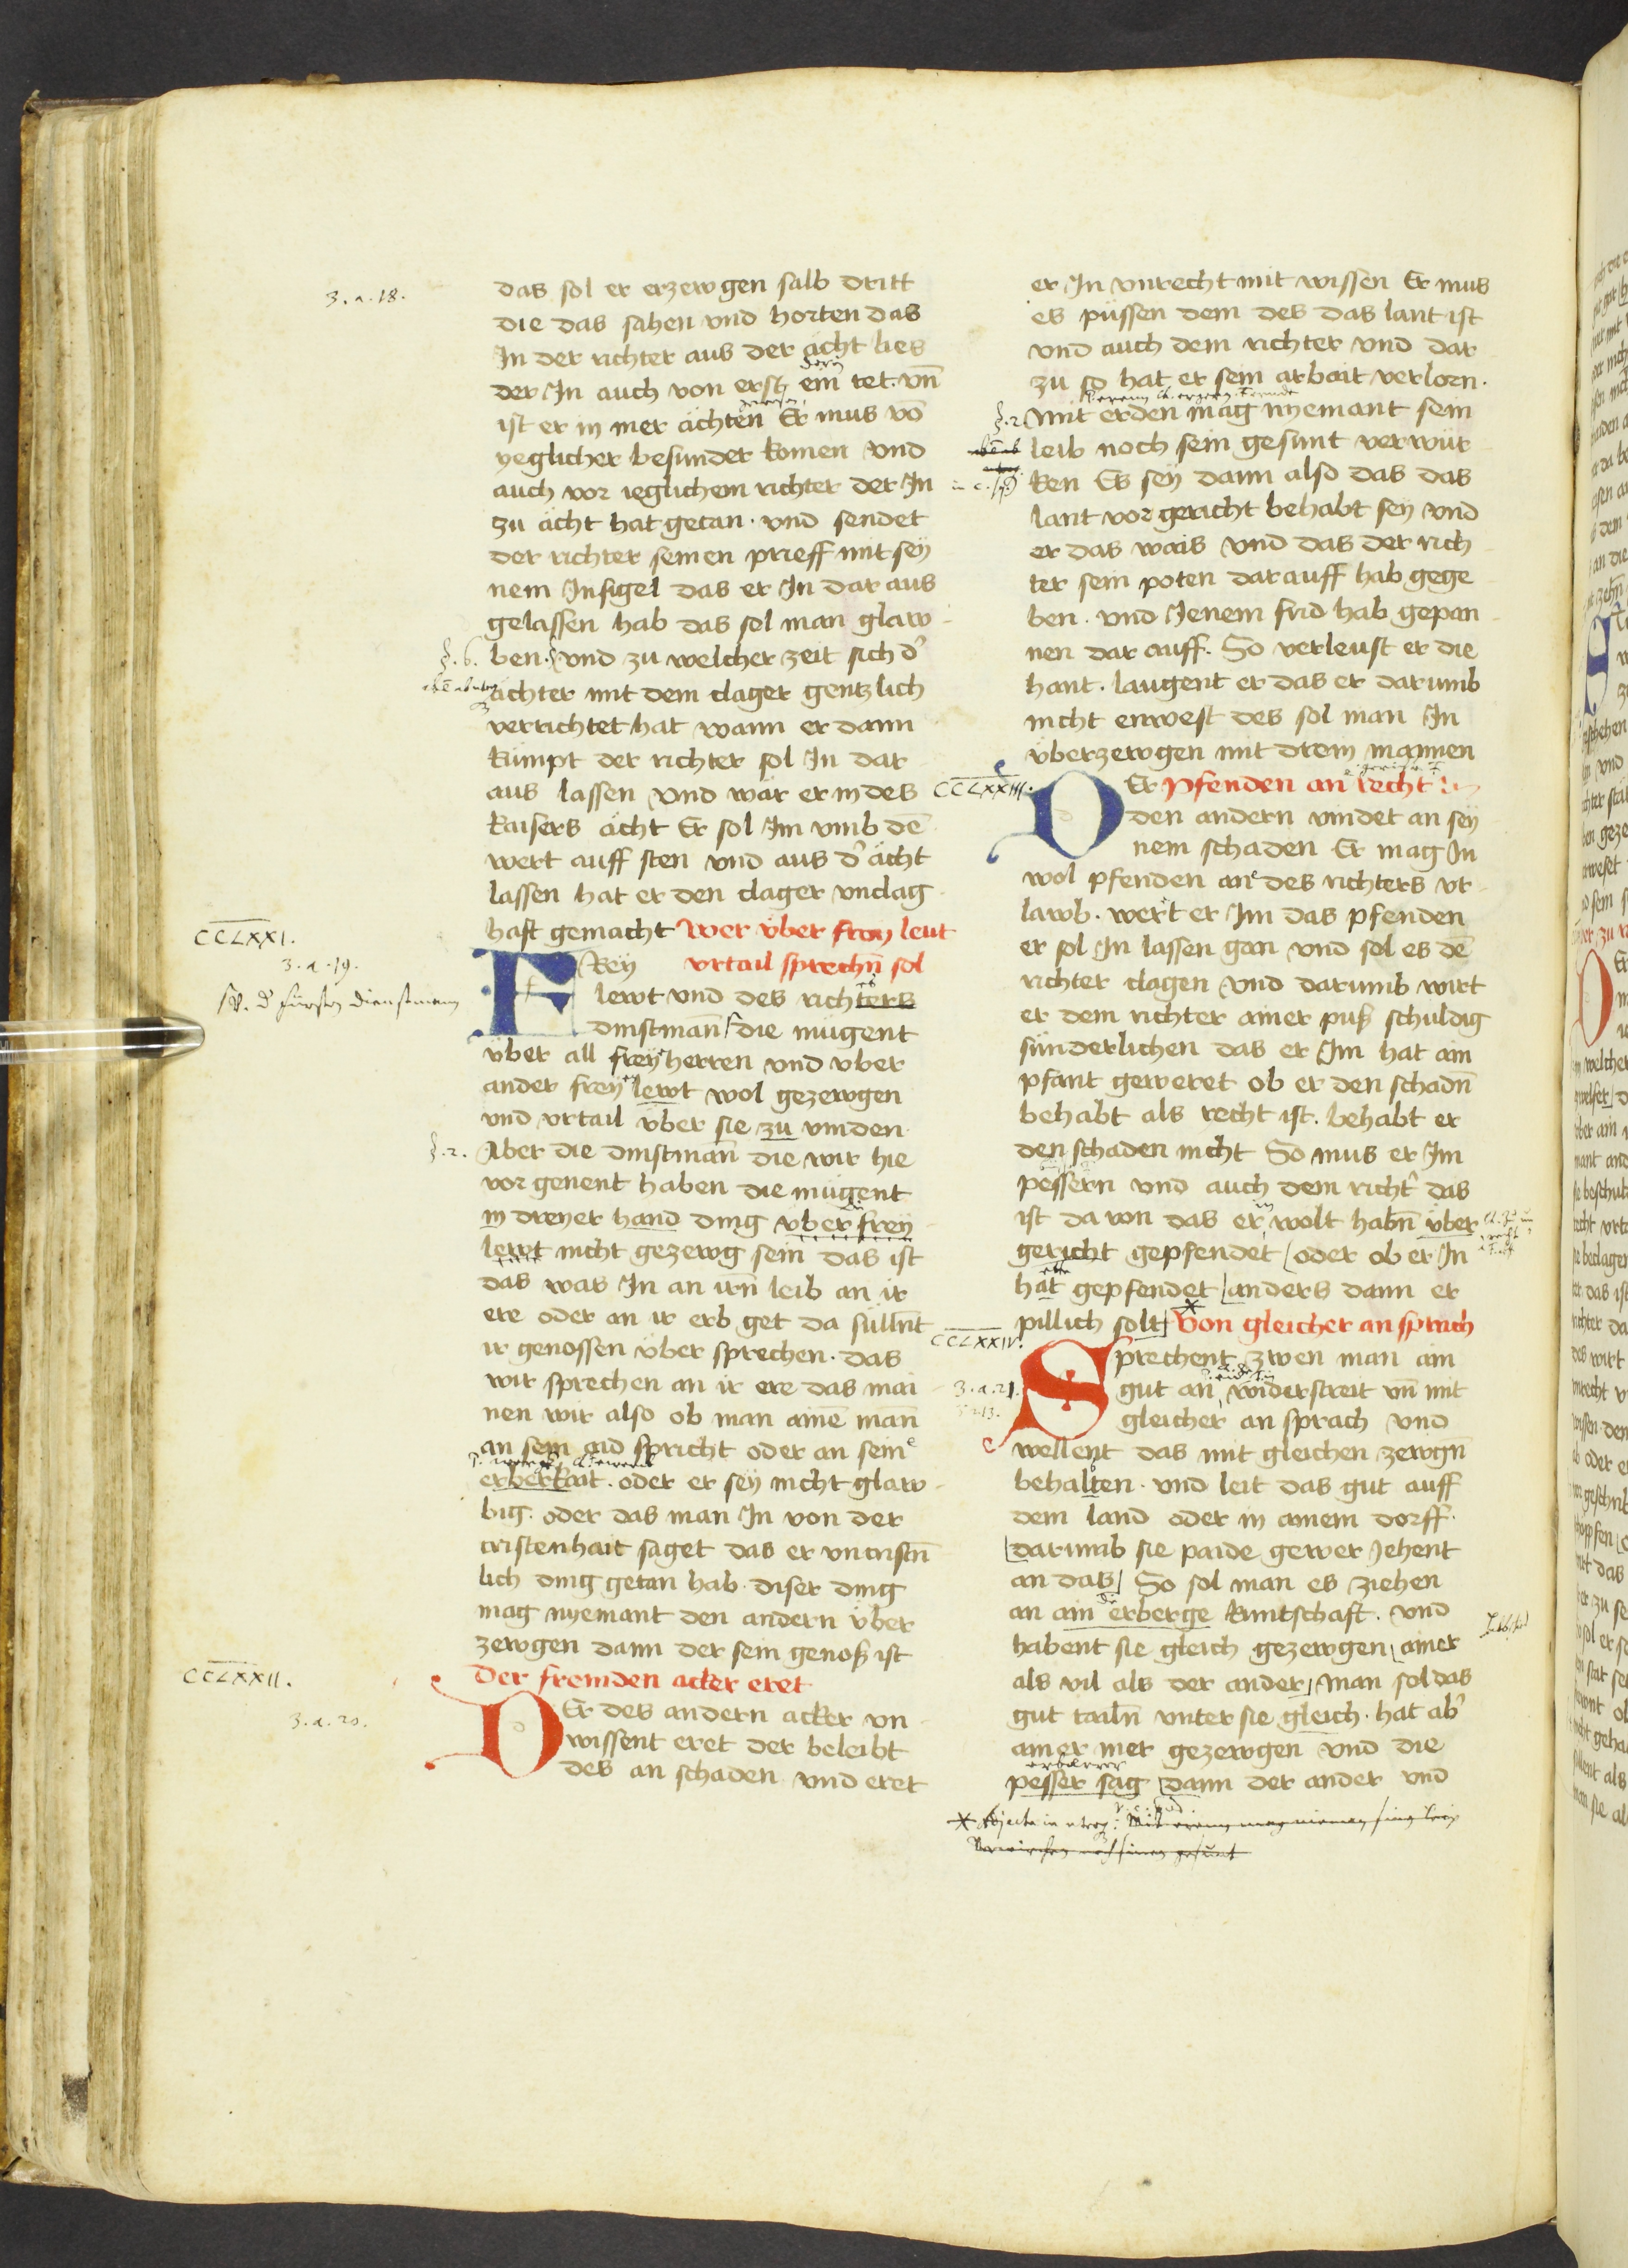 das sol er erzewgen salb dritt
die das sahen vnd horten das
In der richter aus der ächt lies
der In auch von erst ein tet. vn̄
ist er in mer ächten Er mus vō
yeglicher besunder komen vnd
auch vor ieglichem richter der In
zu ächt hat getan. vnd sendet
der richter seinen prieff mit sey
nem Insigel das er In dar aus
gelassen hab das sol man glaw
ben. vnd zu welcher zeit sich d'
ächter mit dem clager gentzlich
verrichtet hat wann er dann
kumpt der richter sol In dar
aus lassen vnd wär er in des
kaisers ächt Er sol Im vmb dē
wert auff sten vnd aus d' ächt
lassen hat er den clager vnclag
haft gemacht Wer vber frey leut
vrtail sprechn̄ sol
FRey
lewt vnd des richters
dinstman̄ die mügent
vber all frey herren vnd vber
ander frey lewt wol gezewgen
vnd vrtail vber sie zu vinden
Aber die dinstman̄ die wir hie
vor genent haben die mügent
in dreyer hand ding vber frey
lewt nicht gezewg sein das ist
das was In an irn̄ leib an ir
ere oder an ir erb get da sülln̄t
ir genossen vber sprechen. das
wir sprechen an ir ere das mai
nen wir also ob man ainē man̄
an sein aid spricht oder an sein
erberkait. oder er sey nicht glaw
big. oder das man In von der
cristenhait saget das er vncristn̄
lich ding getan hab. diser ding
mag nyemant den andern vber
zewgen dann der sein genoß ist
Der fremden acker eret
DEr des andern acker vn
wissent eret der beleibt
des an schaden vnd eret
er In vnrecht mit wissen Er mus
es püssen dem des das lant ist
vnd auch dem richter vnd dar
zu so hat er sein arbait verlorn.
Mit erden mag nyemant sein
leib noch sein gesunt verwür
ken Es sey dann also das das
lant vor gericht behabt sey vnd
er das wais vnd das der rich
ter sein poten darauff hab gege
ben. vnd Jenem frid hab gepan
nen dar auff. So verleust er die
hant. laugent er das er darumb
nicht enwest des sol man In
vberzewgen mit drein mannen
DEr Pfenden an recht
den andern vindet an sey
nem schaden Er mag In
wol pfenden an des richters vr
lawb. wert er Im das pfenden
er sol In lassen gan vnd sol es dē
richter clagen vnd darumb wirt
er dem richter ainer puß schuldig
sünderlichen das er Im hat ain
pfant geweret ob er den schadn̄
behabt als recht ist. behabt er
den schaden nicht So mus er Im
pessern vnd auch dem richt' das
ist da von das er wolt habn̄ vber
gericht gepfendet oder ob er In
hat gepfendet anders dann er
pillich solt Von gleicher an sprach
Sprechent zwen man ain
gut an widerstreit vn̄ mit
gleicher an sprach vnd
wellent das mit gleichen zewgn̄
behalten. vnd leit das gut auff
dem land oder in ainem dorff.
darumb sie paide gewer Jehent
an das So sol man es ziehen
an ain erberge kuntschaft. vnd
habent sie gleich gezewgen ainer
als vil als der ander man sol das
gut tailn̄ vnter sie gleich. hat ab'
ainer mer gezewgen vnd die
pesser sag dann der ander vnd
3.a.18.
§.6.
CCLXXI.
3.a.19.
§.2.
CCLXXII.
3.a.20.
§.2.
CCLXXIII.
CCLXXIV.
3.a.21.